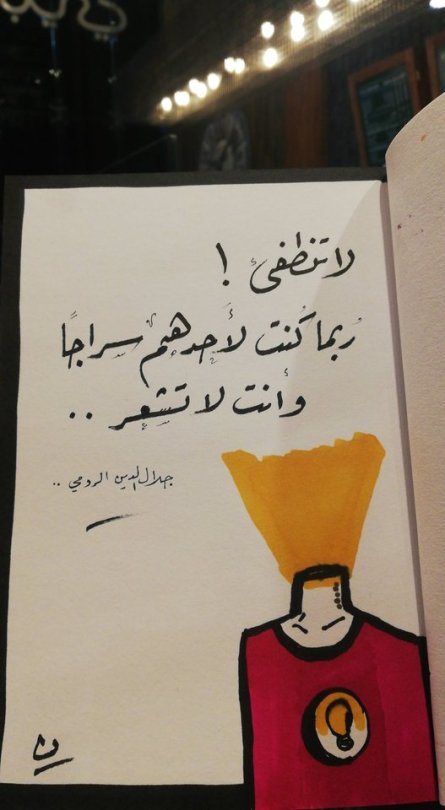 لا تنطفئ !
رُبما كُنت لأَحدِهِمْ سِراجًا
وأنت لا تشعِر ..
جلال الدين الرومي ..